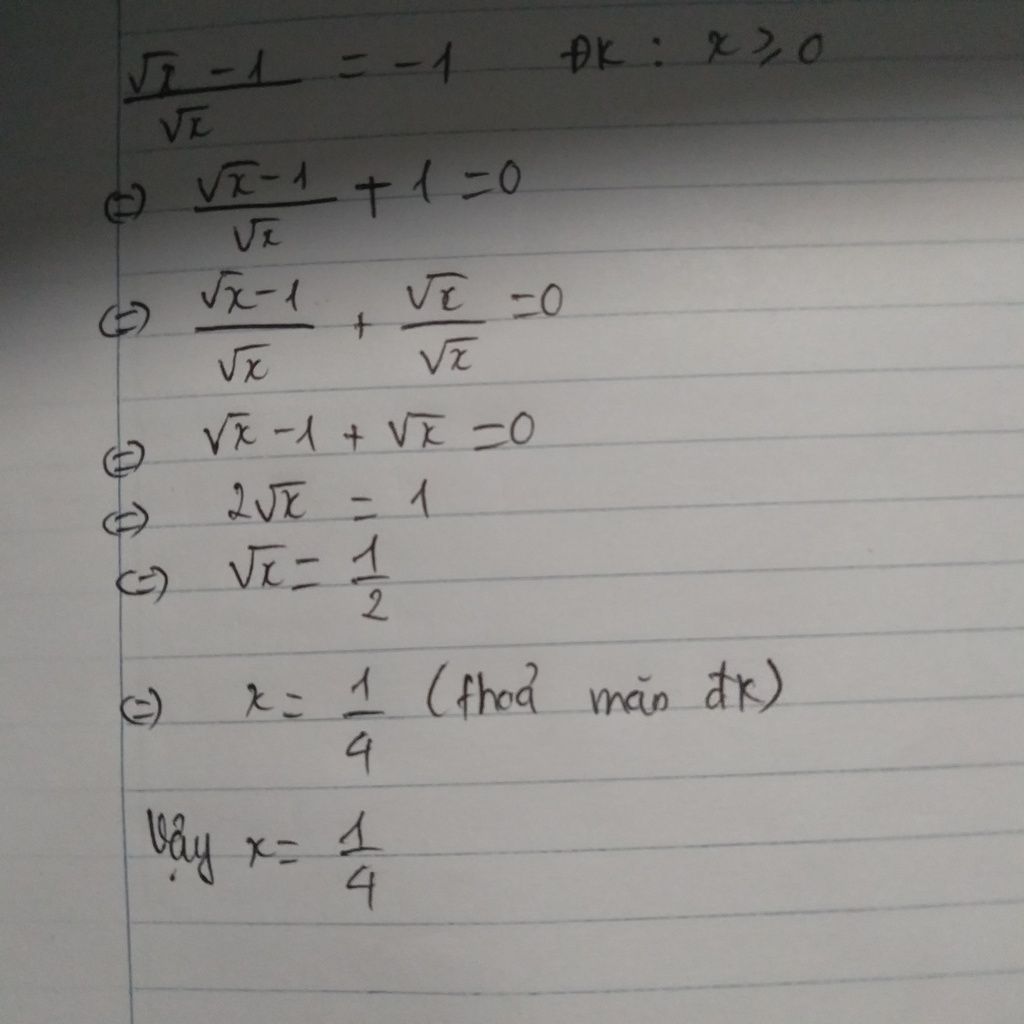 (√x - 1)/√x = -1 ĐK : x ≥ 0
(=) (√x - 1)/√x + 1 = 0
(=) (√x - 1)/√x + √x/√x = 0
(=) √x - 1 + √x = 0
(=) 2√x = 1
(=) √x = 1/2
(=) x = 1/4 (thoả mãn đk)
Vậy x = 1/4